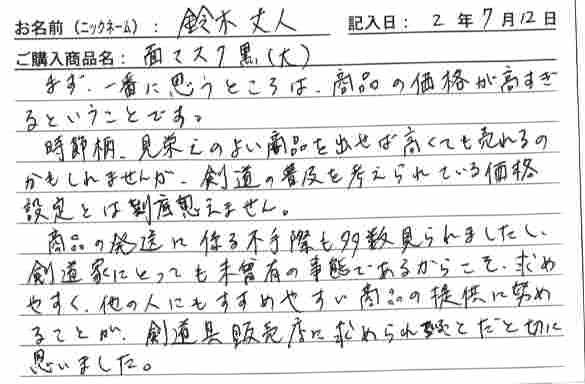 お名前（ニックネーム）： 鈴木 丈人 記入日： 2 年 7 月 12 日
ご購入商品名： 面マスク黒（大）
まず、一番に思うところは、商品の価格が高すぎ
るということです。
時節柄、見栄えのよい商品を出せば高くても売れるの
かもしれませんが、剣道の普及を考えられている価格
設定とは到底思えません。
商品の発送に係る不手際も多数見られましたし、
剣道家にとっても未曾有の事態であるからこそ、求め
やすく、他の人にもすすめやすい商品の提供に努め
ることが、剣道具販売店に求められることだと切に
思いました。